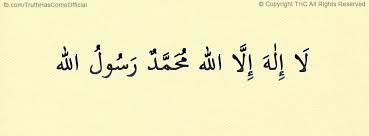 fb.com/TruthHasComeOfficial
© Copyright THC All Rights Reserved
لَا إِلٰهَ إِلَّا الله مُحَمَّدٌ رَسُولُ الله